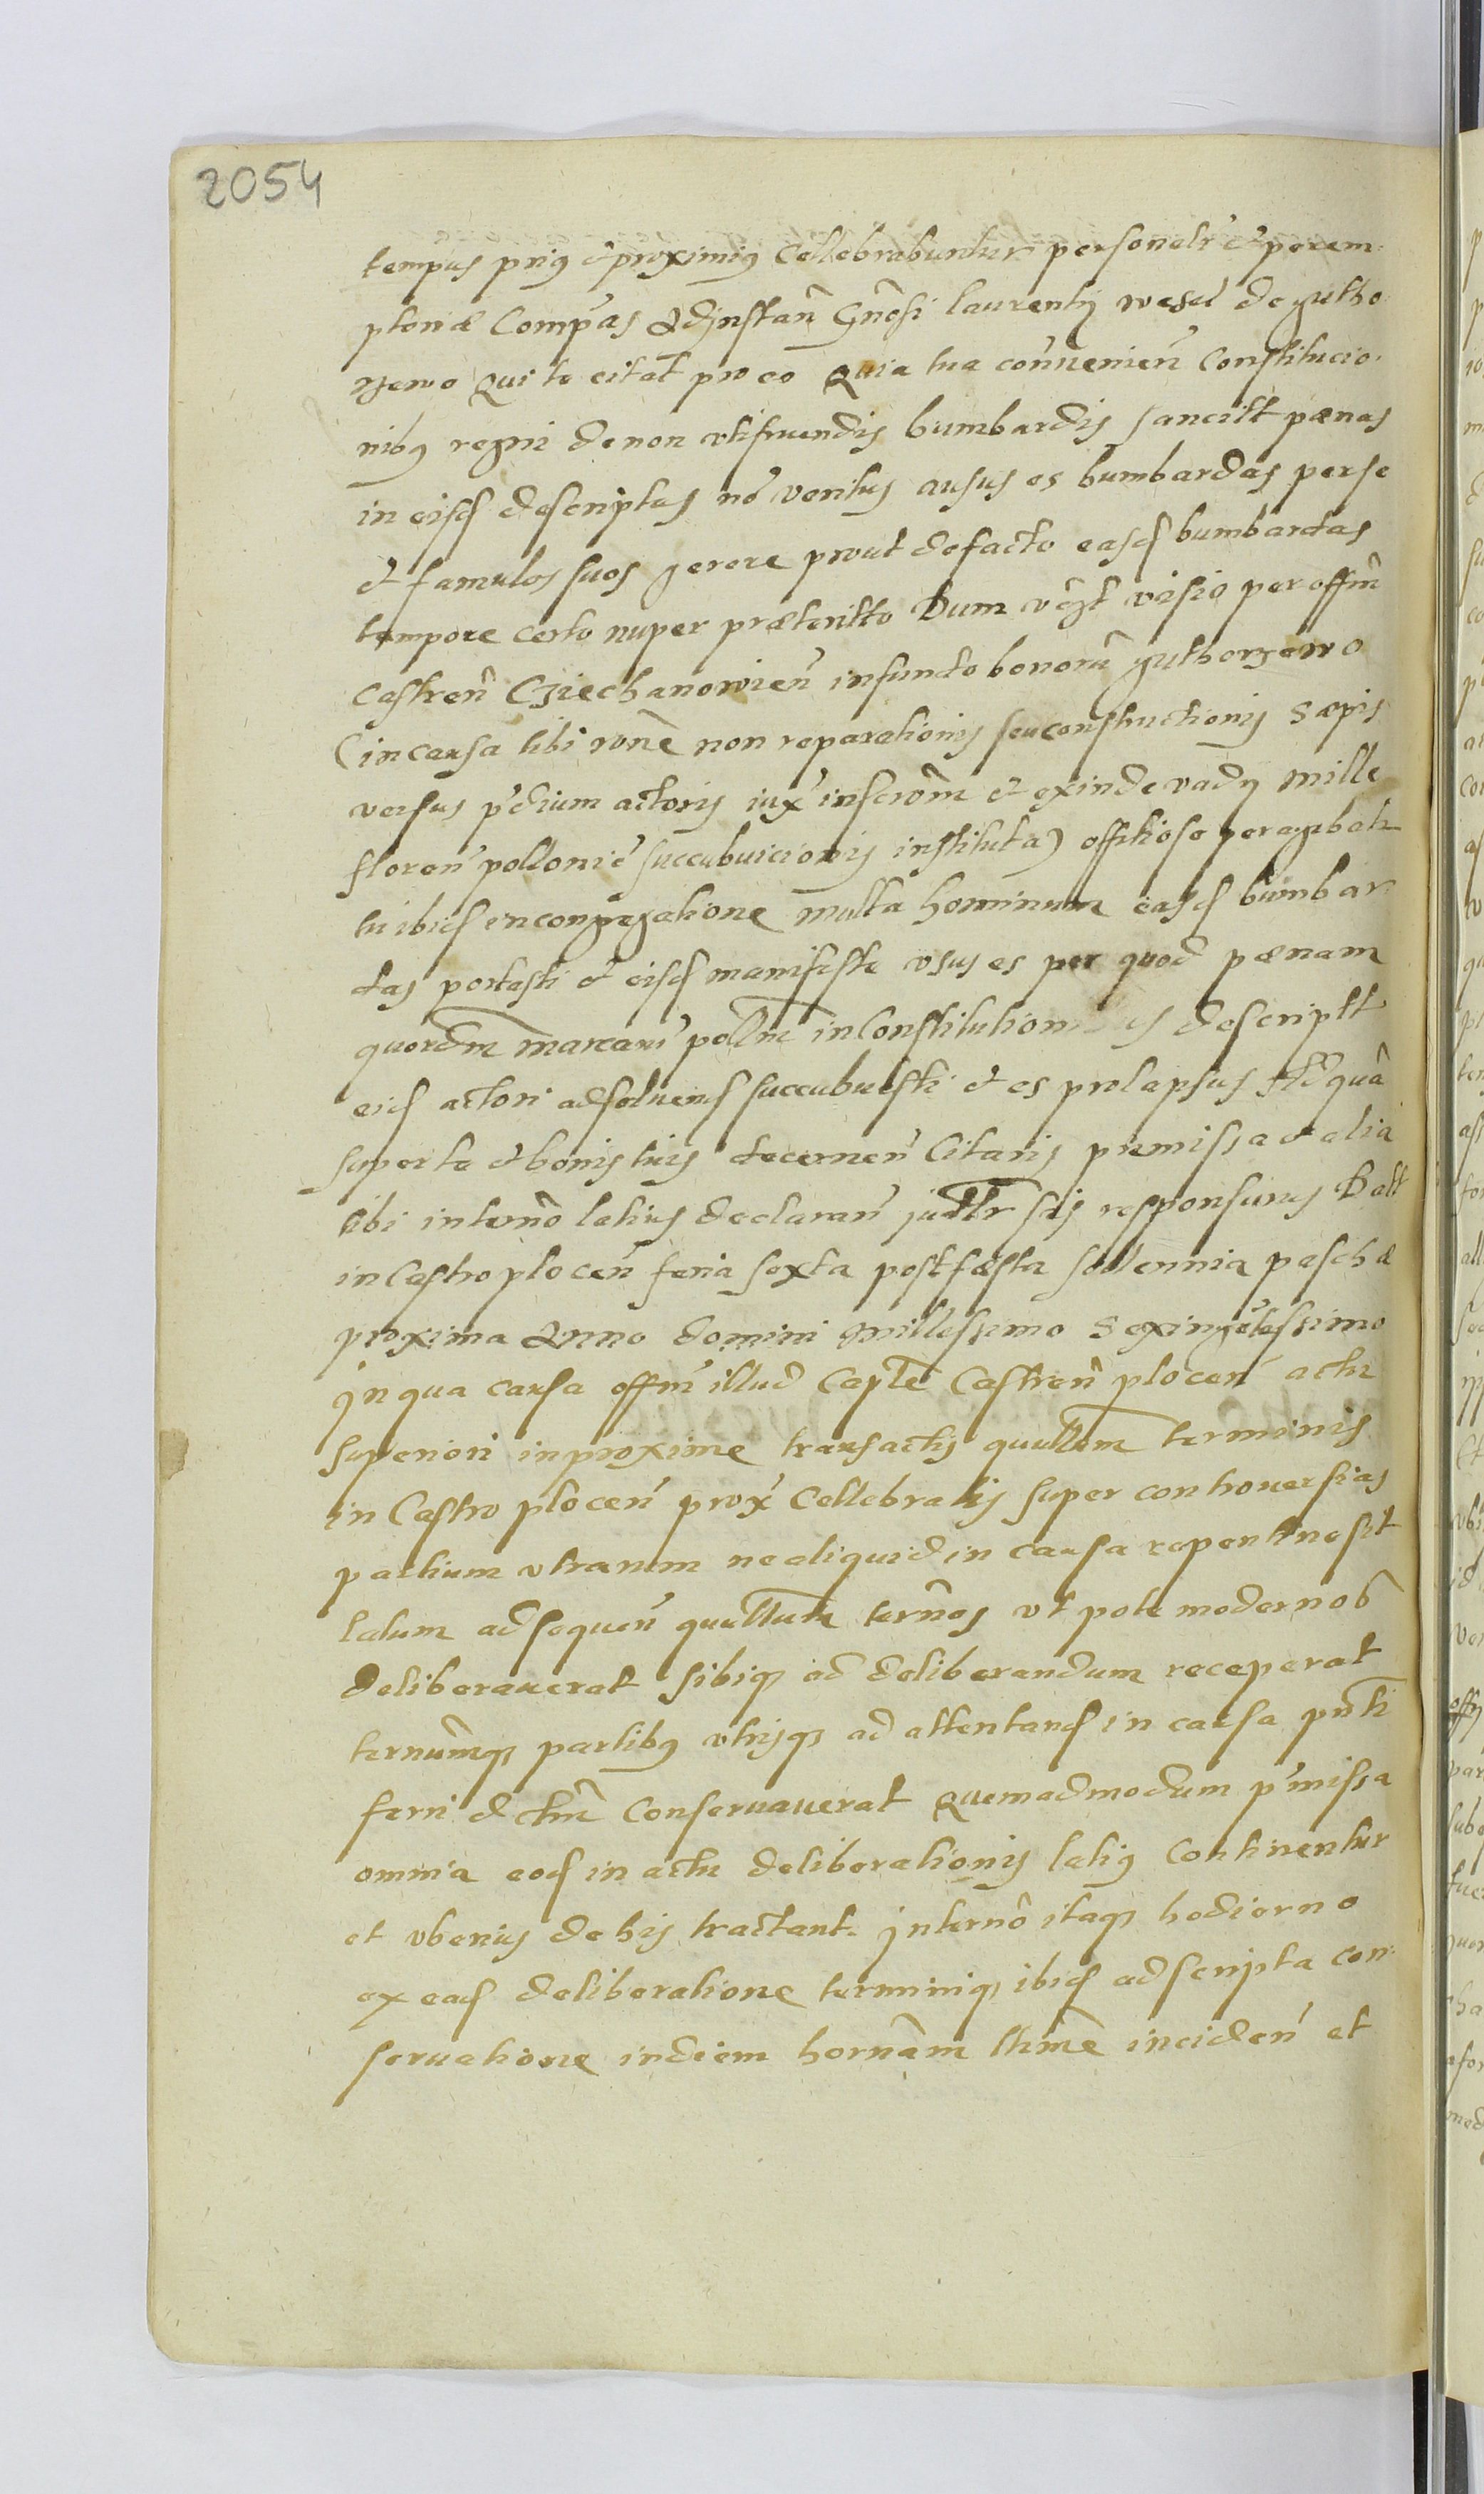 2054
tempus prius et proximius Cellebrabuntur personalr et perem
ptoriæ Compas Ad Instan Gnosi laurentij wesel de gutho
rzewo Qui te citat pro eo Quia tu a conuenien Constitucio
nibus regni de non vtifruendis bumbardis sancitt pænas
in eisd descriptas no veritus ausus es bumbardas per se
et famulos suos gerere prout de facto easd bumbardas
tempore certo nuper præteritto Dum visio per offm
Castren Cziechanowien in fundo bonorum guthorzewo
(in causa tibi rone non reparationis seu constructionis Sæpis
versus pdium actoris iux inscrom et exinde vadij mille
floren pollonic succubuicionis instituta) offitiose peragebatr
tu ibid in congregatione multa hominum easd bumbar
das portasti et eisd manifeste vsus es per quod pænam
quordm marcaru pollm in Constitution descriptt
eid actori ad soluend succubuisti et es prolapsus Ad qua
super te et bonis tuis decernen Citaris premissa et alia
tibi in termo latius declaran judtr sis responsurus Datt
in Castro plocen feria sexta post fæsta sollennia paschæ
proxima Anno domini millessimo Sexingetessimo
In qua causa offm illud Capte Castren plocen actu
superiori in proxime transactis quullum terminis
in Castro plocen prox Cellebratis super controuersias
partium vtrarum ne aliquid in causa repentine sit
latum ad sequen quullum termos vt pote modernos
deliberauerat sibiq ad deliberandum receperat
termumq partibus vtrisq ad attentand in causa pnti
ferri dctm Conseruauerat Quemadmodum pmissa
omnia eod in actu deliberationis latius Continentur
et vberius de his tractant. In termo itaq hodierno
ex ead deliberatione terminiq ibid adscripta con
seruatione in diem hornam ltime inciden et